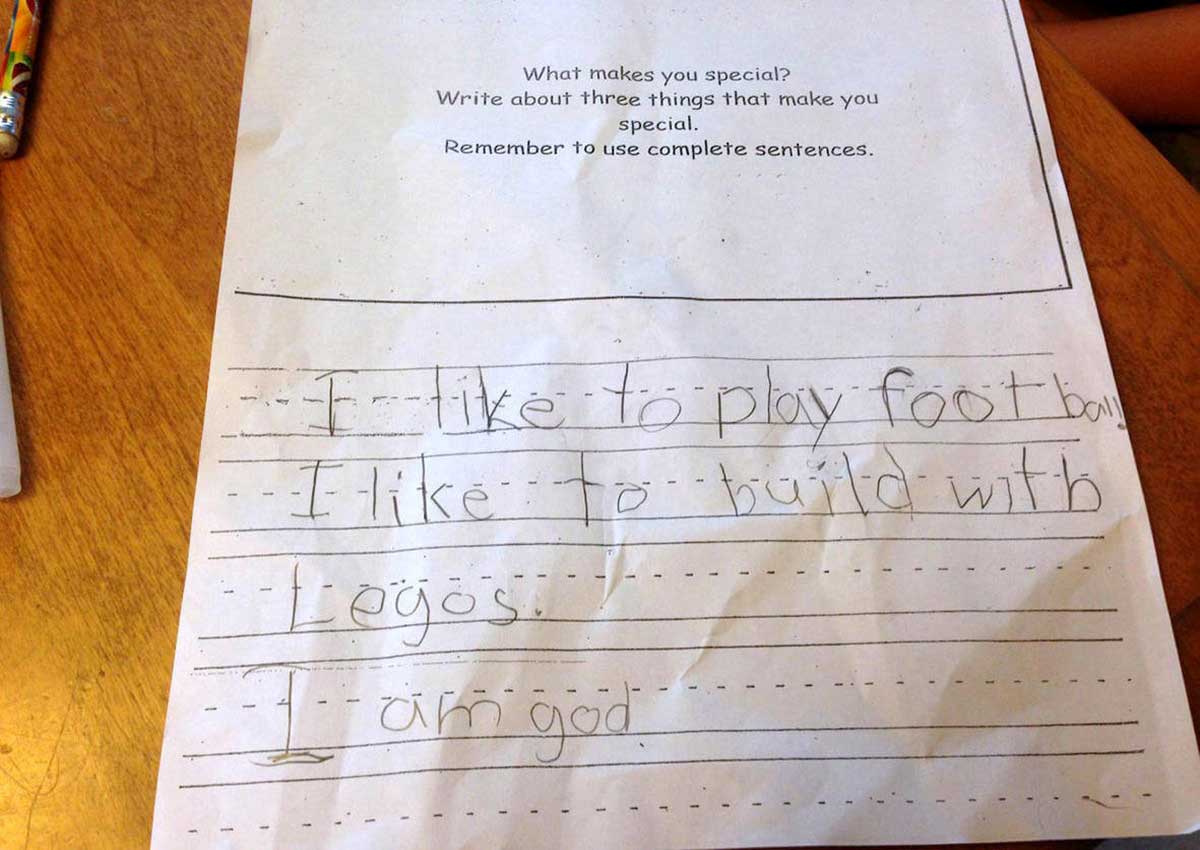 What makes you special?
Write about three things that make you
special.
Remember to use complete sentences.
I like to play football!
I like to build with
Legos.
I am god